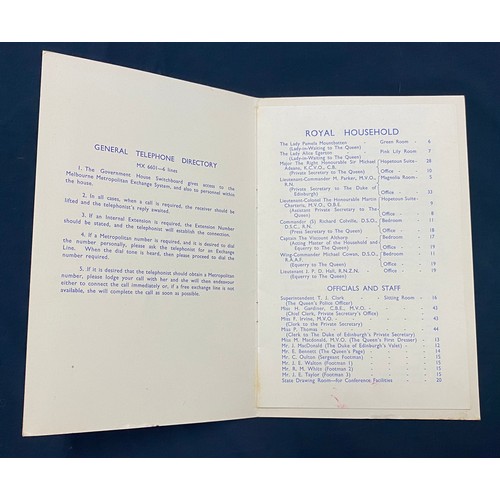 GENERAL TELEPHONE DIRECTORY
MX 6601—6 lines
1. The Government House Switchboard gives access to the
Melbourne Metropolitan Exchange System, and also to personnel within
the house.
2. In all cases, when a call is required, the receiver should be
lifted and the telephonist's reply awaited.
3. If an Internal Extension is required, the Extension Number
should be stated, and the telephonist will establish the connection.
4. If a Metropolitan number is required, and it is desired to dial
the number personally, please ask the telephonist for an Exchange
Line. When the dial tone is heard, then please proceed to dial the
number required.
5. If it is desired that the telephonist should obtain a Metropolitan
number, please lodge your call with her and she will then endeavour
either to connect the call immediately or, if a free exchange line is not
available, she will complete the call as soon as possible.
ROYAL HOUSEHOLD
The Lady Pamela Mountbatten - Green Room - 6
(Lady-in-Waiting to The Queen)
The Lady Alice Egerton - Pink Lily Room - 7
(Lady-in-Waiting to The Queen)
Major The Right Honourable Sir Michael Hopetoun Suite - 28
Adeane, K.C.V.O., C.B.
(Private Secretary to The Queen) Office - 10
Lieutenant-Commander M. Parker, M.V.O., Magnolia Room - 5
R.N.
(Private Secretary to The Duke of
Edinburgh) Office - 33
Lieutenant-Colonel The Honourable Martin Hopetoun Suite -
Charteris, M.V.O., O.B.E. 9
(Assistant Private Secretary to The
Queen) Office - 11
Commander (S) Richard Colville, D.S.O., Bedroom - 8
D.S.C., R.N.
(Press Secretary to The Queen) Office - 18
Captain The Viscount Althorp Bedroom - 17
(Acting Master of the Household and
Equerry to The Queen) Office - 19
Wing-Commander Michael Cowan, D.S.O., Bedroom - 11
R.A.A.F.
(Equerry to The Queen) Office - 19
Lieutenant J. P. D. Hall, R.N.Z.N. Office - 19
(Equerry to The Queen)
OFFICIALS AND STAFF
Superintendent T. J. Clark - Sitting Room - 16
(The Queen's Police Officer)
Miss H. Gardiner, C.B.E., M.V.O. - 43
(Chief Clerk, Private Secretary's Office)
Miss F. Irvine, M.V.O. - 43
(Clerk to the Private Secretary)
Miss P. Thomas - 44
(Clerk to The Duke of Edinburgh's Private Secretary)
Miss M. Macdonald, M.V.O. (The Queen's First Dresser) - 13
Mr. J. MacDonald (The Duke of Edinburgh's Valet) - 12
Mr. E. Bennett (The Queen's Page) - 14
Mr. C. Oulton (Sergeant Footman) - 15
Mr. J. E. Walton (Footman 1) - 15
Mr. R. M. White (Footman 2) - 15
Mr. J. E. Taylor (Footman 3) - 15
State Drawing Room—for Conference Facilities - 20